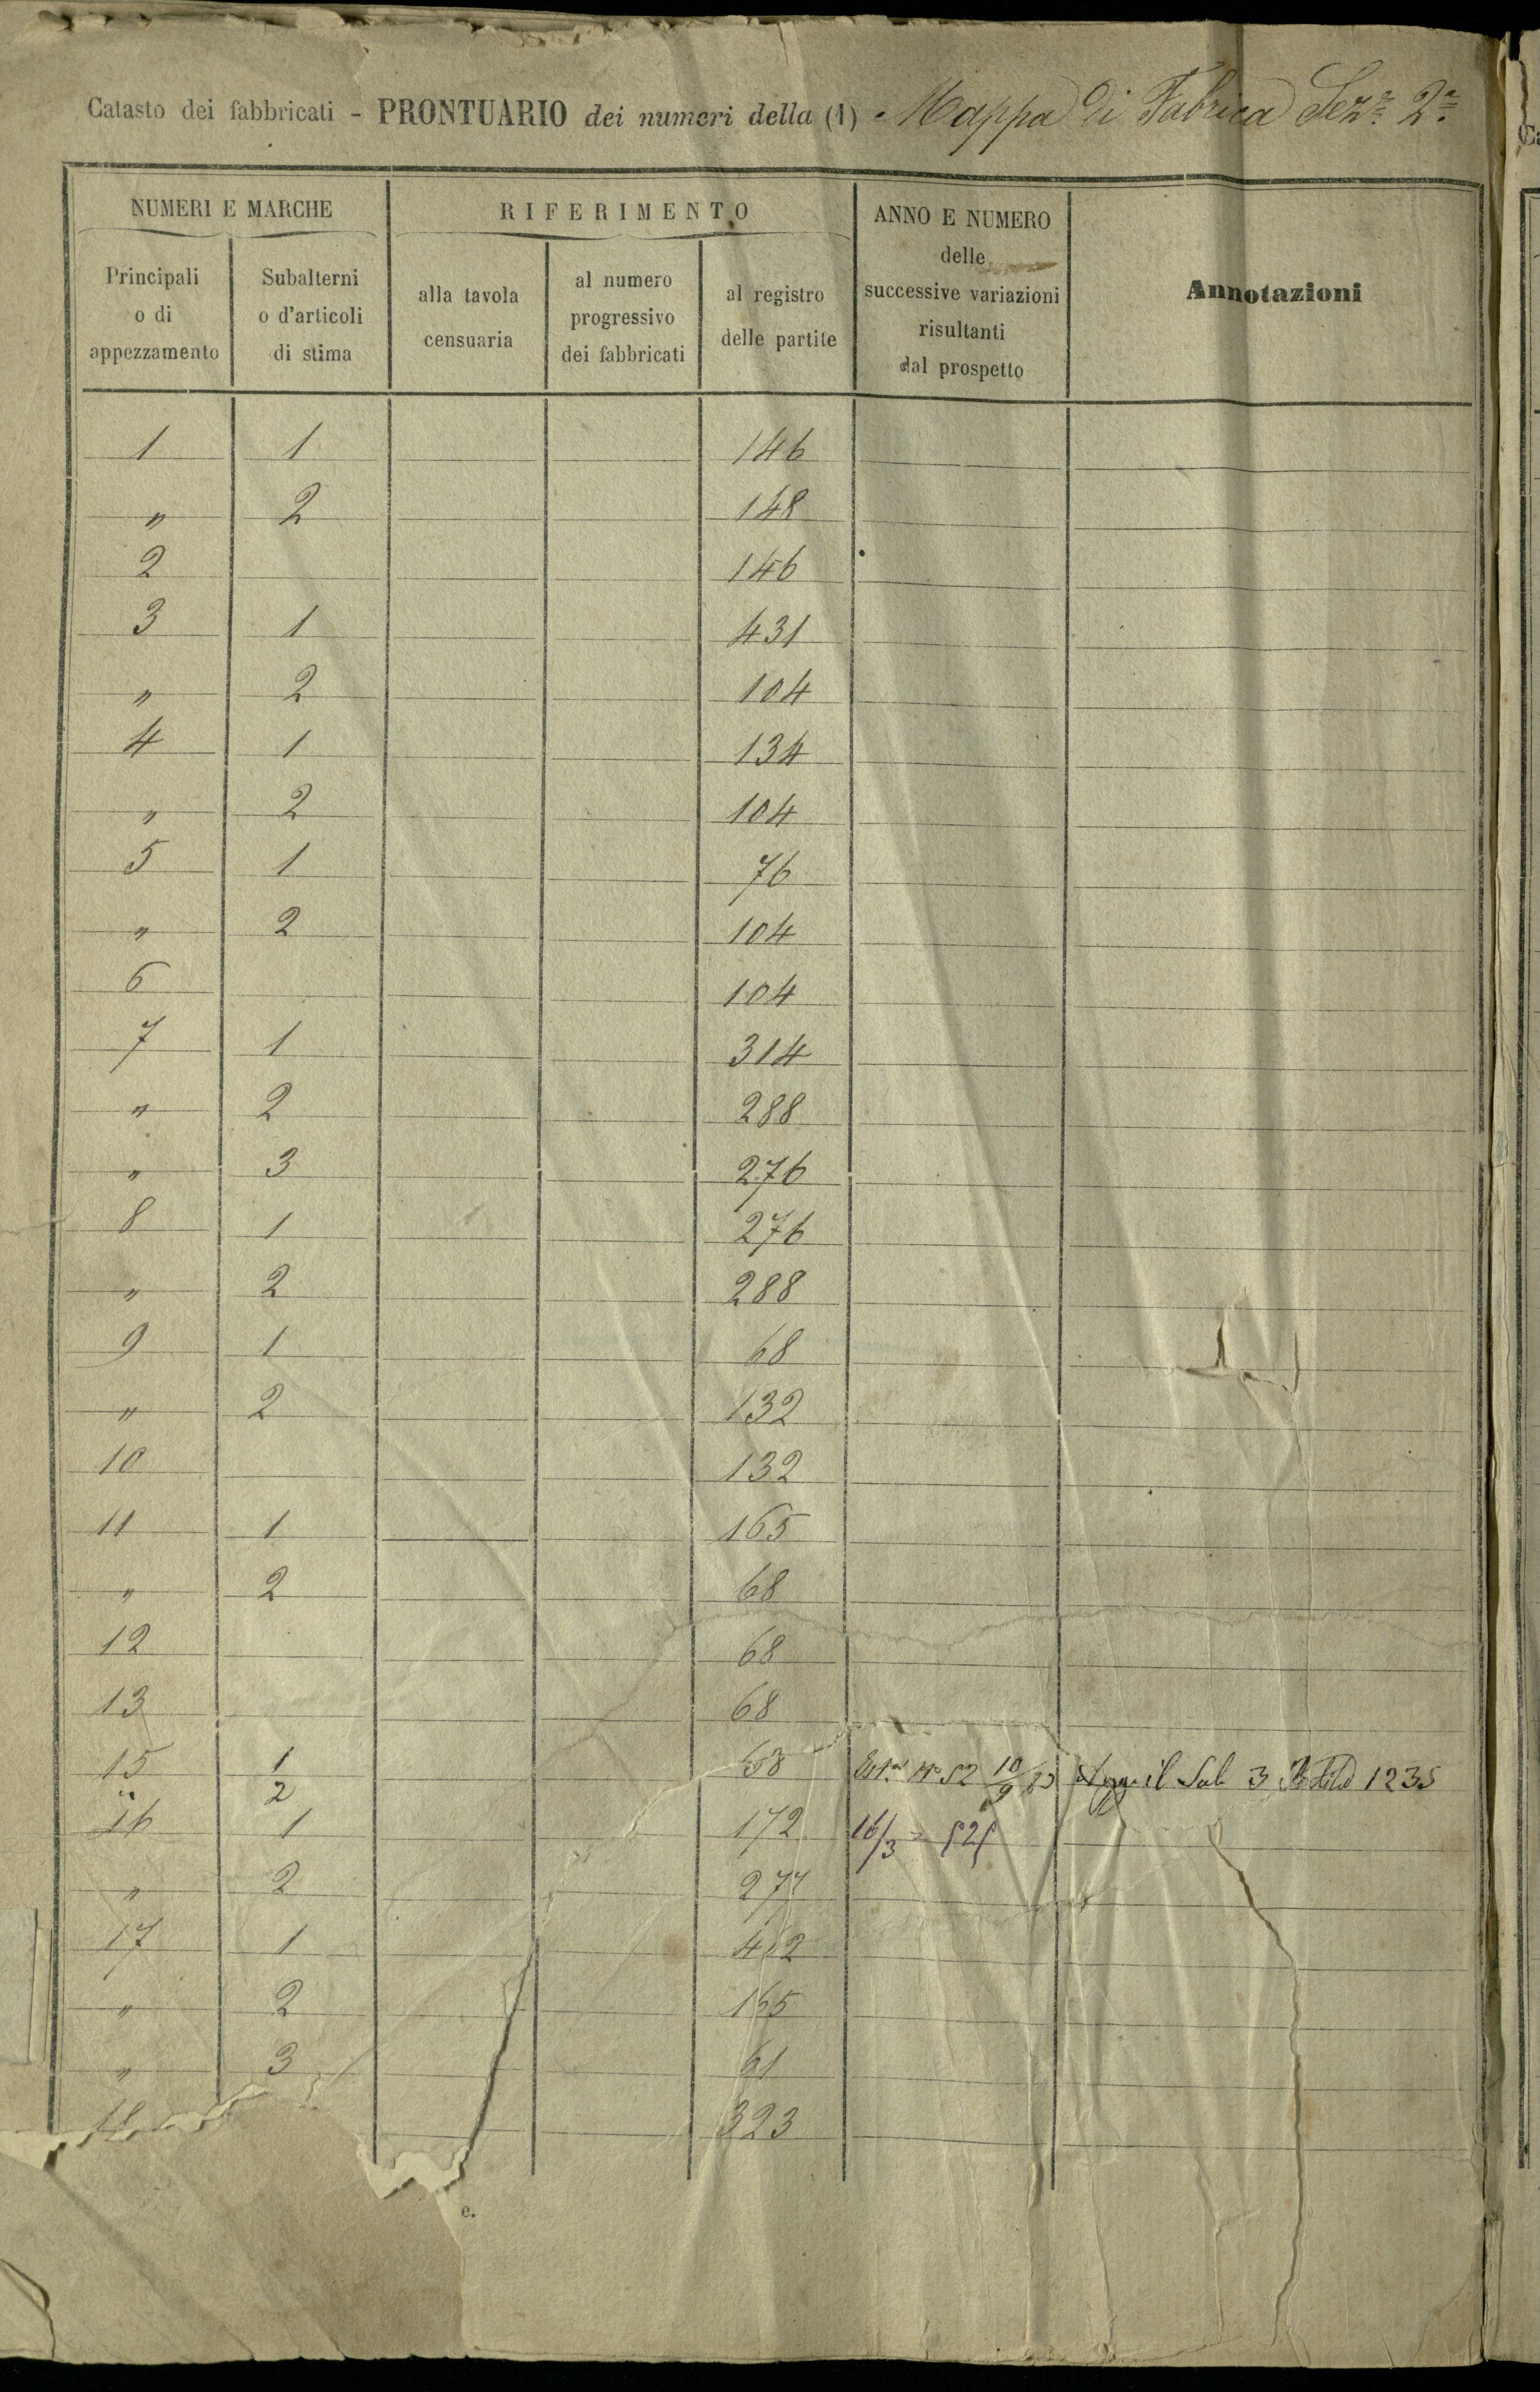 Catasto dei fabbricati - PRONTUARIO dei numeri della (1) Mappa di Fabrica Sezᵃ 2ᵃ
NUMERI E MARCHE
RIFERIMENTO
ANNO E NUMERO
delle
successive variazioni
risultanti
dal prospetto
Annotazioni
Principali
o di
appezzamento
Subalterni
o d'articoli
di stima
alla tavola
censuaria
al numero
progressivo
dei fabbricati
al registro
delle partite
1 1 146
" 2 148
2 146
3 1 431
" 2 104
4 1 134
" 2 104
5 1 76
" 2 104
6 104
7 1 314
" 2 288
" 3 276
8 1 276
" 2 288
9 1 68
" 2 132
10 132
11 1 165
" 2 68
12 68
13 68
15 1 Nº 52 10/9 il Sub 3 1235
" 2
16 1 172 16/3 = 525
" 2 277
17 1
" 2 165
" 3 61
18 323
e.